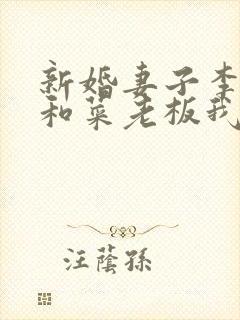 新婚妻子李
和菜老板我
汪蔭孫